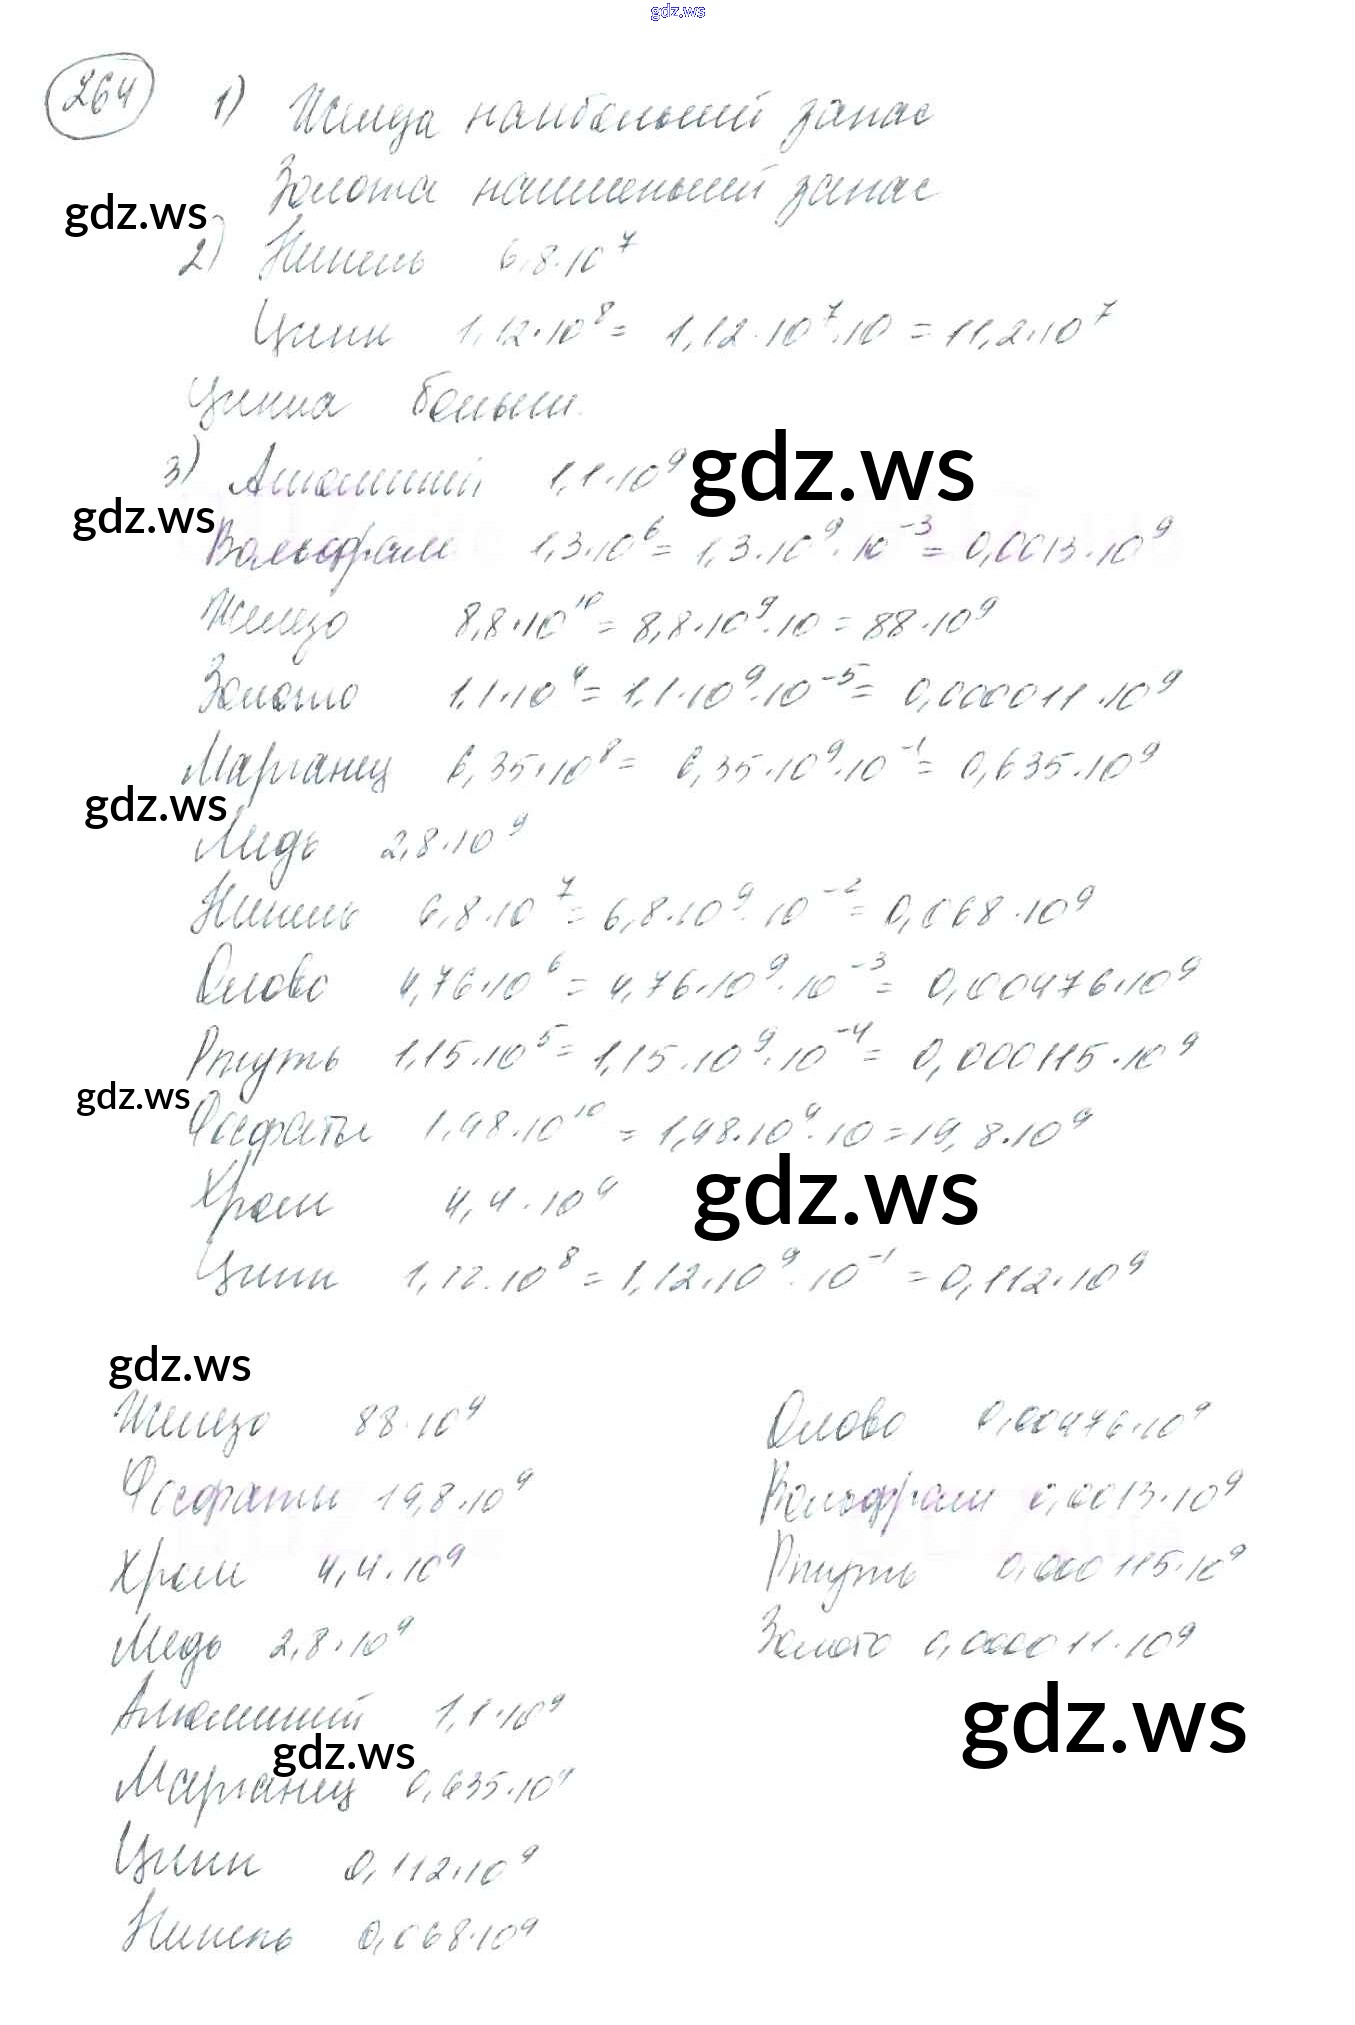 gdz.ws
264 1) Железа наибольший запас
Золота наименьший запас
gdz.ws
2) Никель 6,8·10⁷
Цинк 1,12·10⁸ = 1,12·10⁷·10 = 11,2·10⁷
Цинка больше.
3) Алюминий 1,1·10⁹
gdz.ws
gdz.ws
Вольфрам 1,3·10⁶ = 1,3·10⁹·10⁻³ = 0,0013·10⁹
Железо 8,8·10¹⁰ = 8,8·10⁹·10 = 88·10⁹
Золото 1,1·10⁴ = 1,1·10⁹·10⁻⁵ = 0,000011·10⁹
Марганец 6,35·10⁸ = 6,35·10⁹·10⁻¹ = 0,635·10⁹
gdz.ws
Медь 2,8·10⁹
Никель 6,8·10⁷ = 6,8·10⁹·10⁻² = 0,068·10⁹
Олово 4,76·10⁶ = 4,76·10⁹·10⁻³ = 0,00476·10⁹
Ртуть 1,15·10⁵ = 1,15·10⁹·10⁻⁴ = 0,000115·10⁹
gdz.ws
Фосфаты 1,98·10¹⁰ = 1,98·10⁹·10 = 19,8·10⁹
Хром 4,4·10⁹
gdz.ws
Цинк 1,12·10⁸ = 1,12·10⁹·10⁻¹ = 0,112·10⁹
gdz.ws
Железо 88·10⁹
Фосфаты 19,8·10⁹
Хром 4,4·10⁹
Медь 2,8·10⁹
Алюминий 1,1·10⁹
gdz.ws
Марганец 0,635·10⁹
Цинк 0,112·10⁹
Никель 0,068·10⁹
Олово 0,00476·10⁹
Вольфрам 0,0013·10⁹
Ртуть 0,000115·10⁹
Золото 0,000011·10⁹
gdz.ws